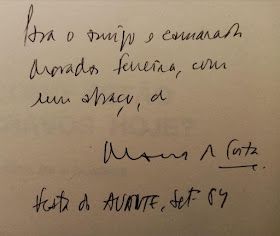 Para o amigo e camarada
Morados Ferreira, com
um abraço, d
Costa
Festa do AVANTE, Set. 84